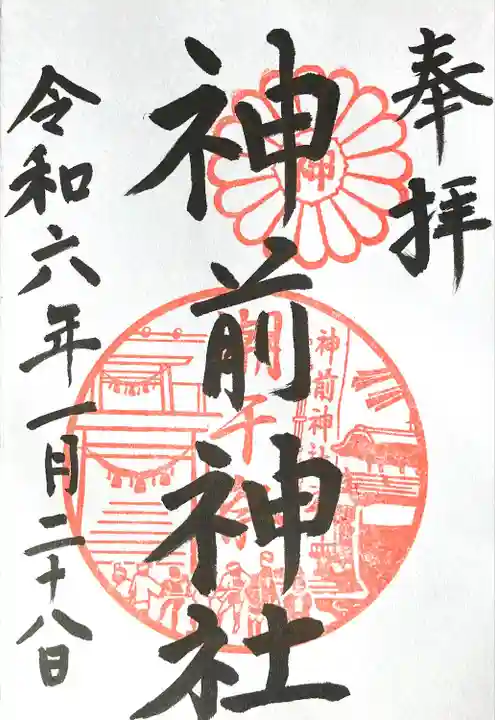 奉拝
神
神前神社
潮干祭
神前神社
令和六年一月二十八日